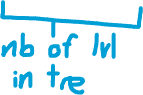 nb of lvl
in tre